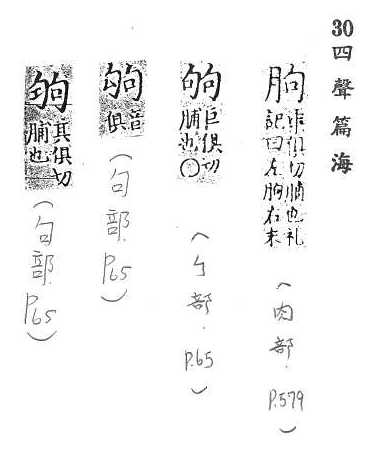 30四聲篇海
朐
俱切脯也礼
記曰左朐右末
(肉部. P.579)
巨俱切
脯也〇
(勹部. P.65)
音
俱
(句部. P.65)
其俱切
脯也
(句部. P.65)